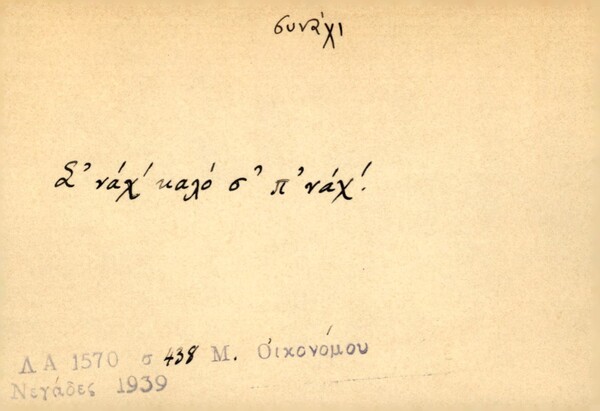 συνάχι
Σ' νάχ' καλό σ' π' νάχ'!
Λ Α 1570 σ 438 Μ. Οἰκονόμου
Νεγάδες 1939